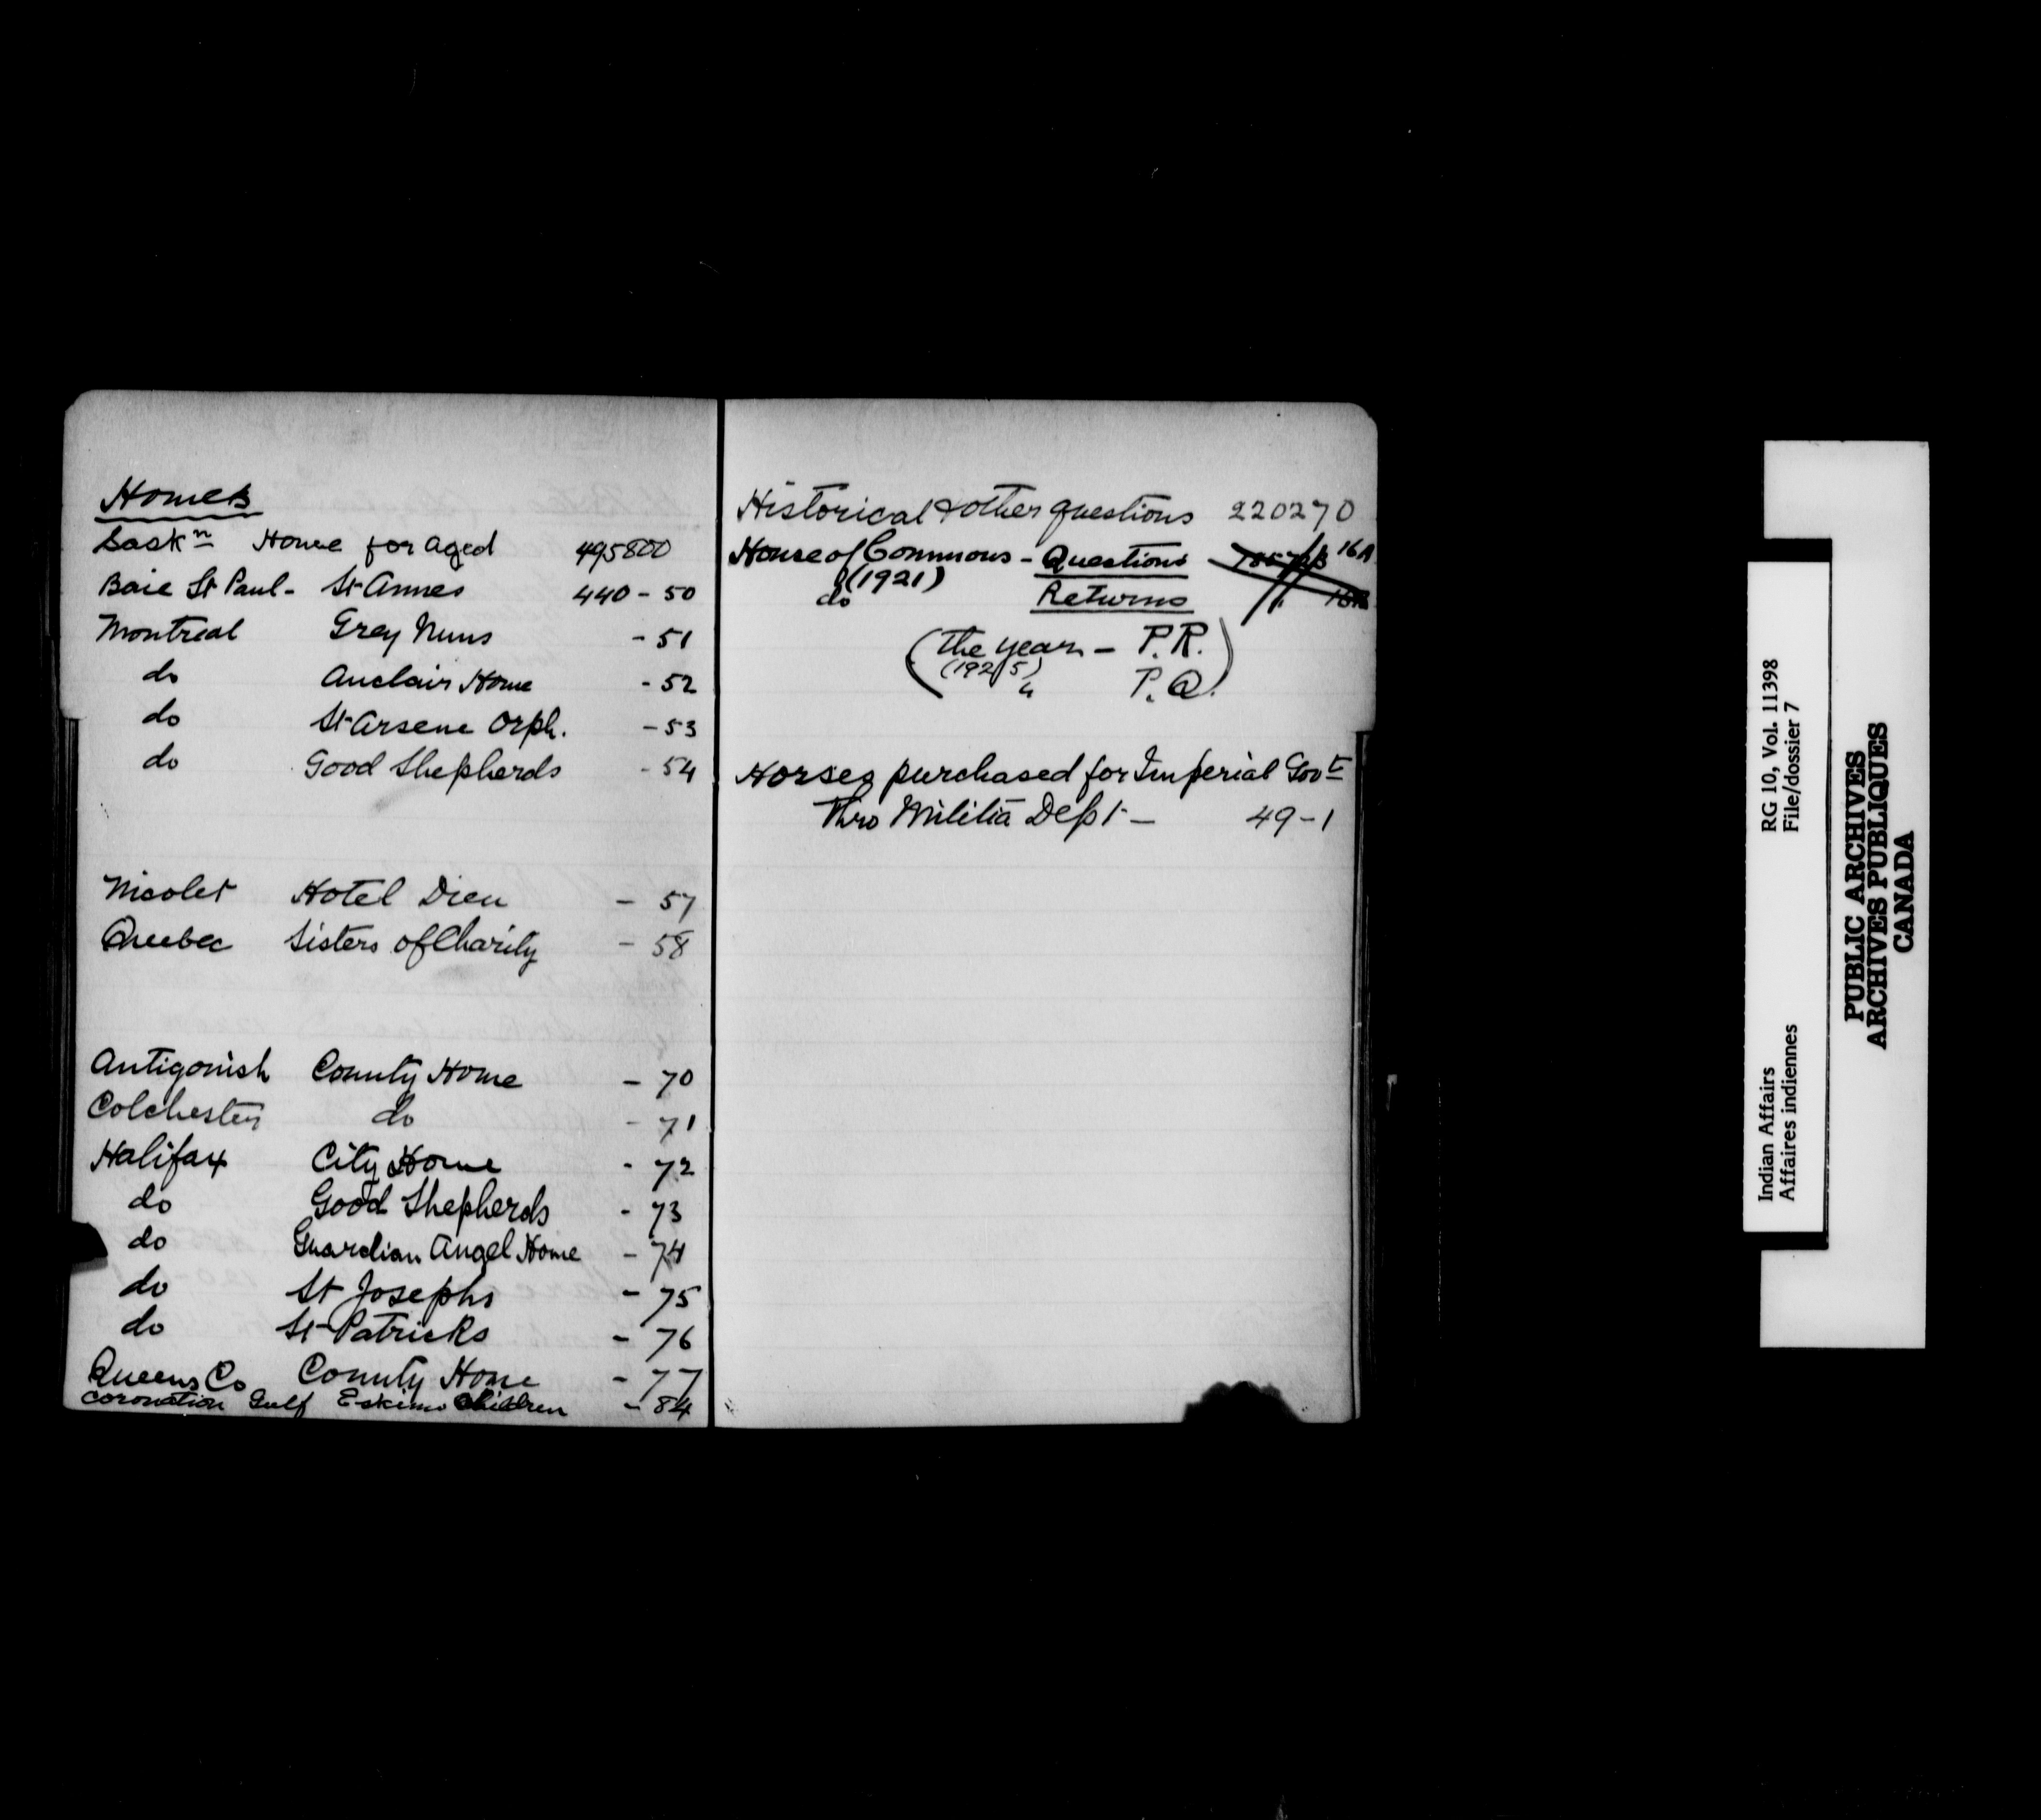 Homes
Saskn Home for aged 495800
Baie St Paul - St Annes 440 - 50
Montreal Grey Nuns - 51
do Auclair Home - 52
do St Arsene Orph. - 53
do Good Shepherds - 54
Nicolet Hotel Dieu - 57
Quebec Sisters of Charity - 58
Antigonish County Home - 70
Colchester do - 71
Halifax City Home - 72
do Good Shepherds - 73
do Guardian Angel Home - 74
do St Josephs - 75
do St Patricks - 76
Queens Co County Home - 77
Coronation Gulf Eskimo Children - 84
Historical & other questions 220270
House of Commons - Questions 16A
(1921)
do Returns
(The year - P.R.
(1925)
" P.Q.)
Horses purchased for Imperial Govt
Thro Militia Dept - 49-1
Indian Affairs RG 10, Vol. 11398
Affaires indiennes File/dossier 7
PUBLIC ARCHIVES
ARCHIVES PUBLIQUES
CANADA